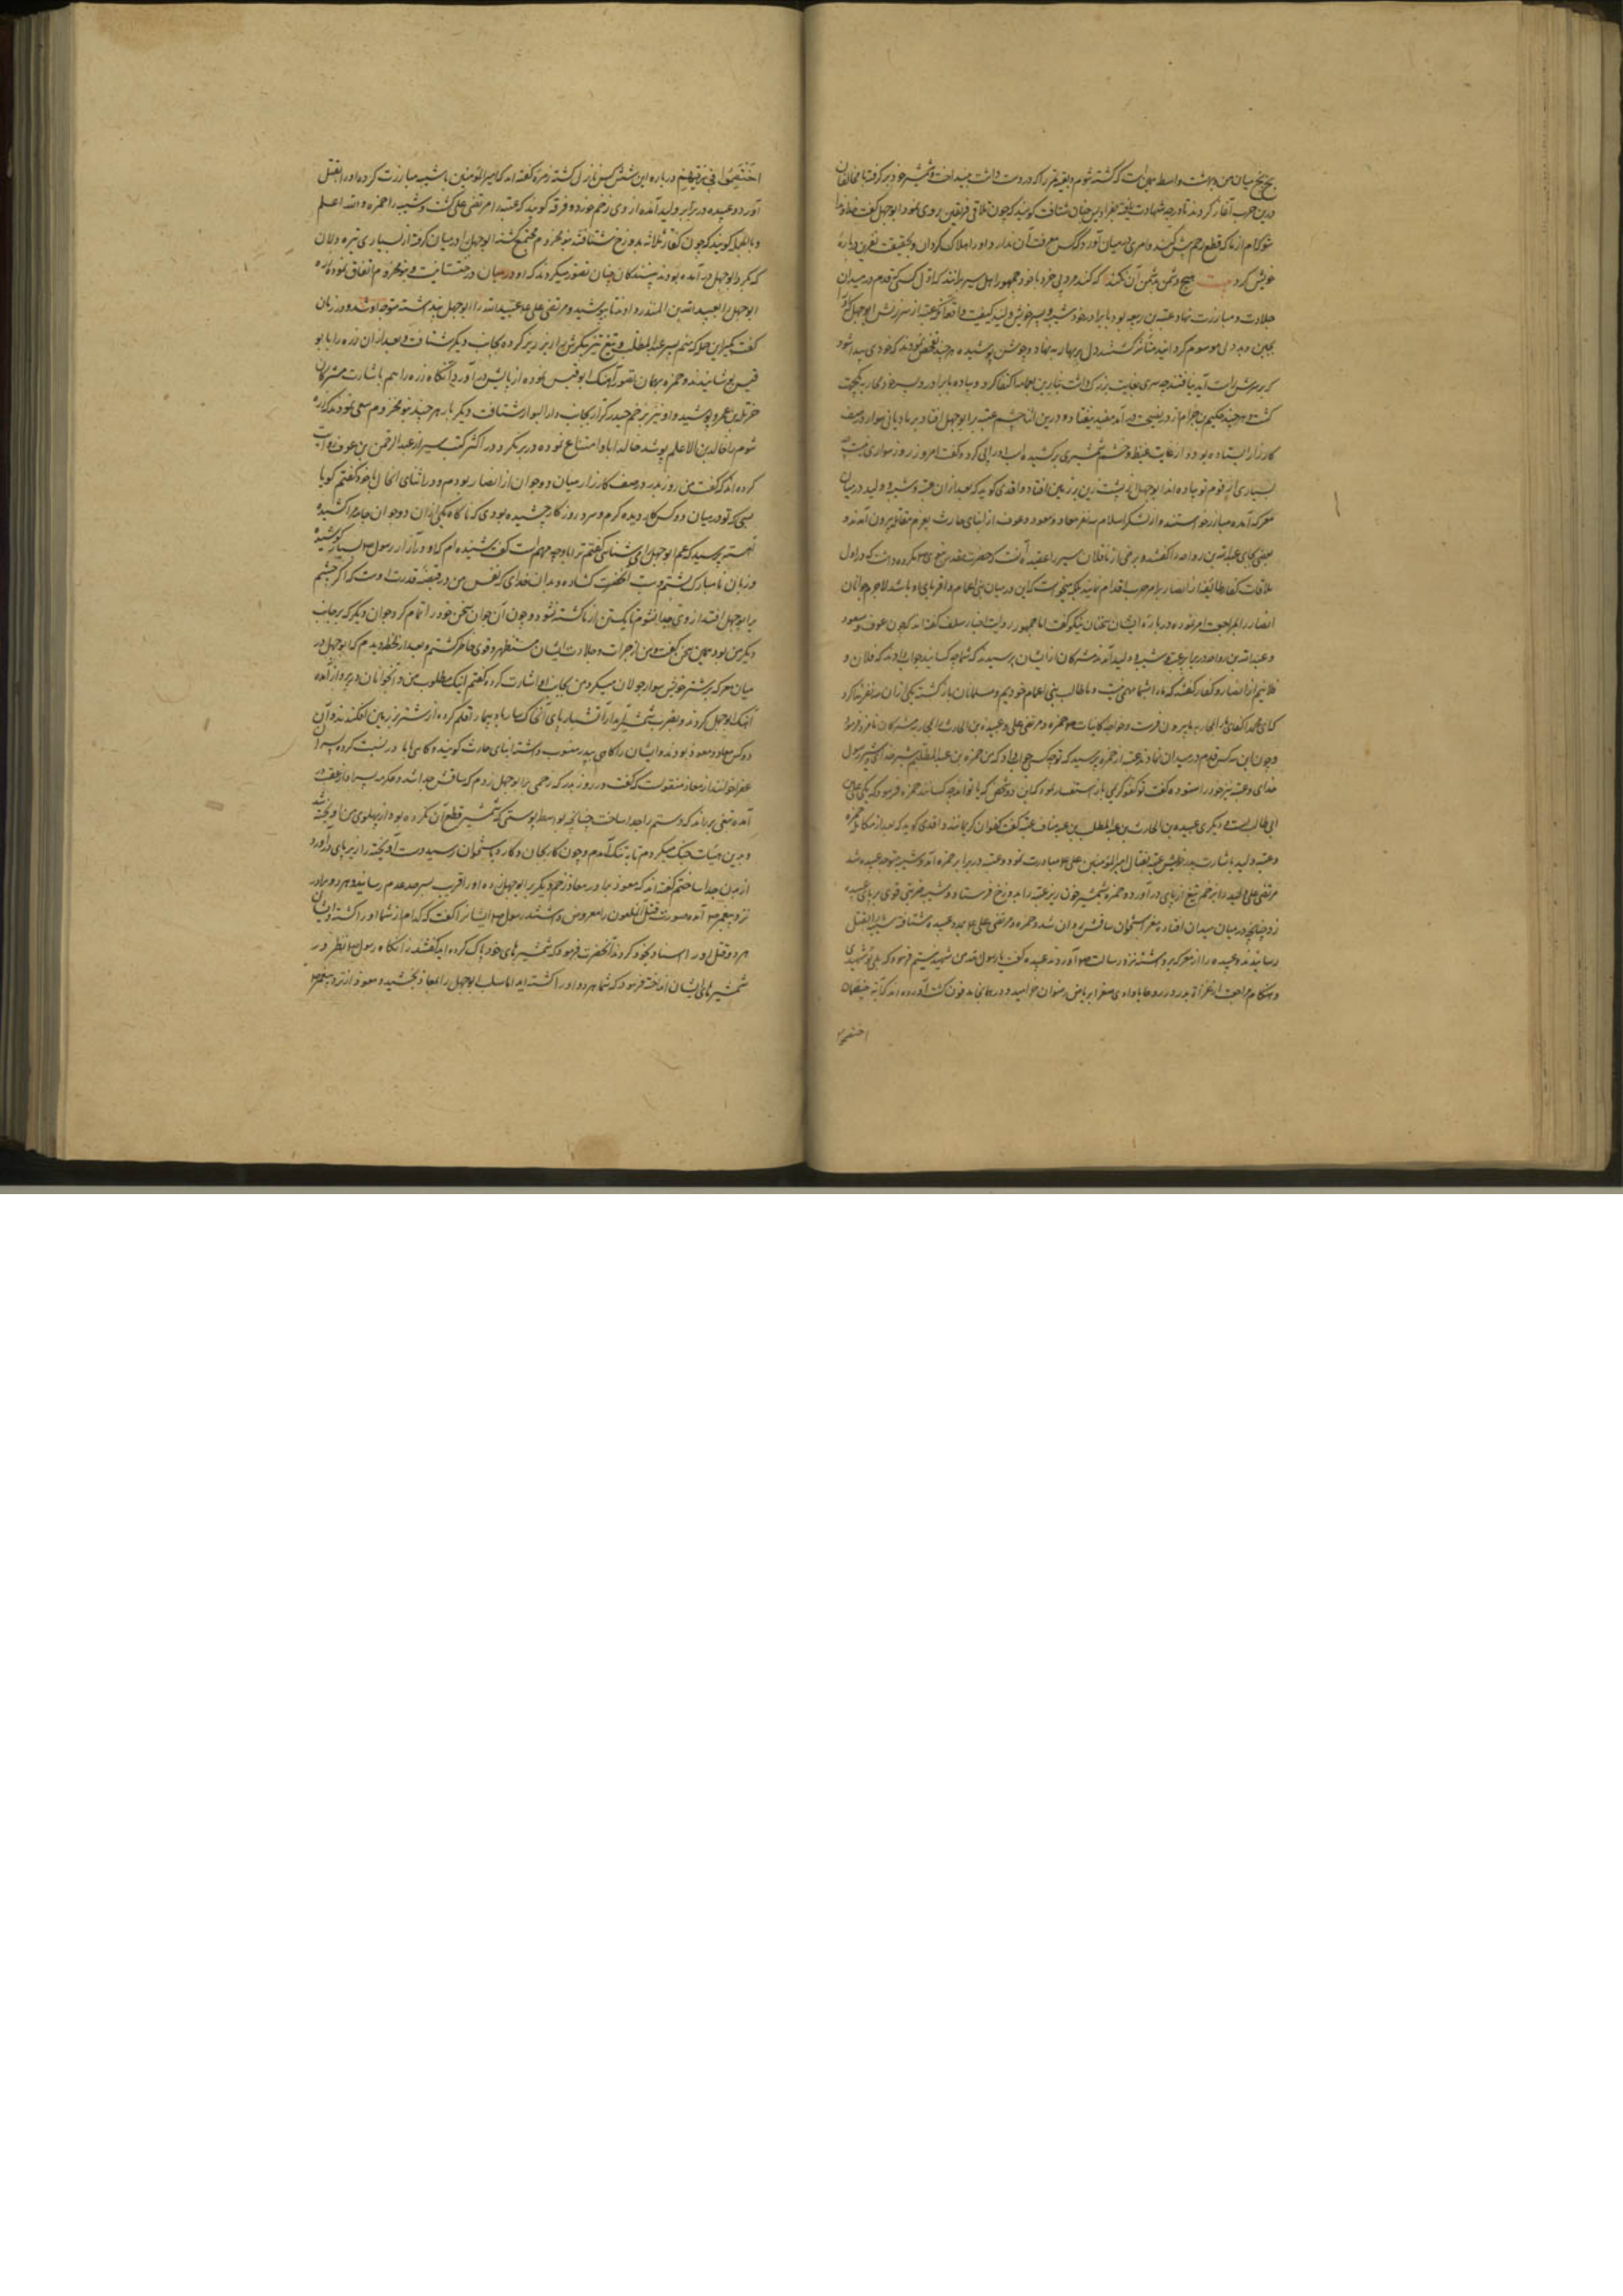 بخ بخ میان من و بهشت واسطه همین است که کشته شوم و بقیه تمر را که در دست داشت بینداخت و شمشیر خود بر گرفته با مخالفان
دین حرب آغاز کرد تا درجه شهادت یافته کویند که چون تلاقی فریقین روی نمود ابوجهل گفت خداوندا
هر کدام از ما که قطع رحم بیش کند و امری در میان آورد که کس معرفت آن ندارد او را هلاک گردان و بحقیقت نفرین درباره
خویش کرد بیت هیچ دشمن بدشمن آن نکند که کند مرد بی خرد با خود جمهور اهل سیر برانند که اول کسی که قدم در میدان
جلادت و مبارزت نهاد عتبه بن ربیعه بود با برادر خود شیبه و پسر خویش ولید کیفیت واقعه آنکه عتبه از سرزنش ابوجهل که او را
بجبن و بد دلی موسوم گردانید متاثر گشته دل بر پیکار نهاد و جوشن پوشیده هر چند تفحص نمودند که خودی پیدا شود
که بر سرش راست آید نیافتند چه سری بغایت بزرک داشت بنابرین بعمامه اکتفا کرد و پیاده با برادر و پسر خود محاربه را
گشت و هر چند حکیم بن حزام از در نصیحت در آمد مفید نیفتاد و درین اثنا چشم عتبه بر ابوجهل افتاد بر مادیانی سوار در صف
کارزار ایستاده بود و از غایت غیظ و خشم شمشیری برکشیده اسب او را پی کرد و گفت امروز روز سواری نیست
بسیاری از قوم تو پیاده اند ابوجهل از پشت زین بر زمین افتاد واقدی کوید که بعد از آن عتبه و شیبه و ولید در میان
معرکه آمده مبارز خواستند و از لشکر اسلام سه نفر معاذ و معوذ و عوف از ابنای حارث بعزم مقاتله بیرون آمدند و
بعضی بجای عبدالله بن رواحه را گفته و برخی از ناقلان سیر را عقیده آنست که حضرت مقدس نبوی ص مکروه داشت که در اول
ملاقات کفار طائفه از انصار بامر حرب اقدام نمایند بلکه میخواست که این در میان بنی اعمام و اقربای او باشد لاجرم جوانان
انصار را بمراجعت امر فرموده درباره ایشان سخنان نیکو گفت اما جمهور روایت اخبار سلف گفته اند که چون عوف و معوذ
و عبدالله بن رواحه در برابر عتبه و شیبه و ولید آمدند مشرکان از ایشان پرسیدند که شما چه کسانید جواب دادند که فلان و
فلانیم از انصار و کفار گفتند که ما را بشما مهمی نیست و ما طالب بنی اعمام خودیم و مسلمانان باز گشته یکی از آن سه نفر ندا کرد
که ای محمد اکفای ما را بمحاربه ما بیرون فرست و خواجه کاینات ص حمزه و مرتضی علی و عبیده بن الحارث را بمحاربه مشرکان نامزد فرمود
و چون این سه کس قدم در میدان نهادند عتبه از حمزه پرسید که تو چه کسی جواب داد که من حمزه بن عبدالمطلبم شیر خدا و شیر رسول
خدای و عتبه نیز خود را ستوده گفت تو کفو کریمی باز استفسار نمود که این دو شخص که با تواند چه کسانند حمزه فرمود که یکی علی بن
ابی طالب است و دیگری عبیده بن الحارث بن عبدالمطلب بن عبد مناف عتبه گفت کفوان کریمانند واقدی کوید که بعد از مکالمه
و عتبه ولید باشارت پدر خویش عتبه بقتال امیر المومنین علی ع مبادرت نمود و عتبه در برابر حمزه آمد و شیبه متوجه عبیده شد
مرتضی علی ولید را بزخم تیغ از پای در آورد و حمزه بشمشیر خون ریز عتبه را بدوزخ فرستاد و شیبه ضربتی قوی بر پای عبیده
زد چنانچه در میان میدان افتاد و مغز استخوان ساقش روان شد و حمزه و مرتضی علی ع بمدد عبیده شتافته شیبه را بقتل
رسانیدند و عبیده را از معرکه برداشته نزد رسالت ص آوردند عبیده گفت یا رسول الله من شهید نیستم فرمود که بلی تو شهیدی
و هنگام مراجعت از غزاة بدر در روحا یا وادی صفرا بریاض رضوان خرامید و در همانجا مدفون گشت آورده اند که آیه خصمان
اختصموا
اختصموا فی ربهم درباره این شش کس نازل گشته زمره گفته اند که امیر المومنین با شیبه مبارزت کرده او را بقتل
آورد و عبیده در برابر ولید آمده از وی زخم خورد و فرقه کویند که عتبه را مرتضی علی کشت و شیبه را حمزه والله اعلم
و بالجمله کویند که چون کفار ثلاثه بدوزخ شتافتند بنو مخزوم مجتمع گشته ابوجهل را در میان گرفته از بسیاری نیزه داران
که بگرد ابوجهل در آمده بودند بینندگان چنان تصور میکردند که او در میان درختستانیست و بنو مخزوم اتفاق نموده زره
ابوجهل را بعبدالله بن المنذر دادند تا بپوشید و مرتضی علی ع عبدالله را ابوجهل پنداشته متوجه او شد و در زبان
گفت بگیر این حمله که منم پسر عبدالمطلب و بتیغ تیز پیکرش را زیر و زبر کرده بجانب دیگر شتافت و بعد از آن زره را با ابو
قیس پوشانیدند و حمزه بهمان تصور آهنگ ابوقیس نموده از پایش در آورد و آنگاه زره را هم باشارت مشرکان
حرملة بن عمرو پوشید و او نیز بزخم حیدر کرار بجانب دار البوار شتافت دیگر بار هر چند بنو مخزوم سعی نمودند که زره
شوم را خالد بن الاعلم پوشد خالد ابا و امتناع نموده در بر نکرد و در اکثر کتب سیر از عبدالرحمن بن عوف روایت
کرده اند که گفت من روز بدر در صف کارزار میان دو جوان از انصار بودم و در اثنای آن حال با خود گفتم کویا
آهسته پرسید که عم ابوجهل را می شناسی گفتم ترا با وچه مهم است گفت شنیده ام که او در آزار رسول ص بسیار کوشیده
و زبان نامبارک بشتم و سب آنحضرت گشاده و بدان خدای که نفس من در قبضه قدرت اوست که اگر چشمم
بر ابوجهل افتد از وی جدا نشوم تا یکتن از ما کشته نشود و چون آن جوان سخن خود را تمام کرد جوان دیگر که بر جانب
دیگر من بود همین سخن گفت و من از جرات و جلادت ایشان مستظهر و قوی خاطر گشتم و بعد از لحظه دیدم که ابوجهل در
میان معرکه بر شتر خویش سوار جولان میکرد من بجانب او اشارت کرده گفتم اینک مطلوب من و آن جوانان در پرواز آمده
آهنگ ابوجهل کردند و بضرب شمشیر آبدار آن تبه کار پای آنکه ... از شتر بر زمین افکندند و آن
دو کس معاذ و معوذ بودند و ایشان را گاهی بپدر منسوب داشته ابنای حارث کویند و گاهی بمادر نسبت کرده پسران
عفرا خوانند از معاذ منقولست که گفت در روز بدر که زخمی بر ابوجهل زدم که ساقش جدا شد و عکرمه پسر او از عقب
آمده تیغی بر من راند که دستم را جدا ساخت چنانچه بواسطه پوستی که شمشیر قطع آن نکرده بود از پهلوی من آویخته شد
و بدین هیات جنک میکردم تا به تنک آمدم و چون کار بجان و کارد باستخوان رسید دست آویخته را زیر پای در آورده
از بدن جدا ساختم گفته اند که معوذ برادر معاذ زخم دیگر بر ابوجهل زده او را قریب بسرحد عدم رسانید و هر دو برادر
نزد پیغمبر ص آمده صورت قتل آن ملعون را معروض داشتند رسول ص ایشانرا گفت که کدام از شما او را کشته و ایشان
هر دو قتل او را اسناد بخود کردند آنحضرت فرمود که شمشیرهای خود پاک کرده اید گفتند نه آنگاه رسول ص نظر در
شمشیرهای ایشان انداخته فرمود که شما هر دو او را کشته اید اما سلب ابوجهل را بمعاذ بخشید و معوذ از نزد پیغمبر ص